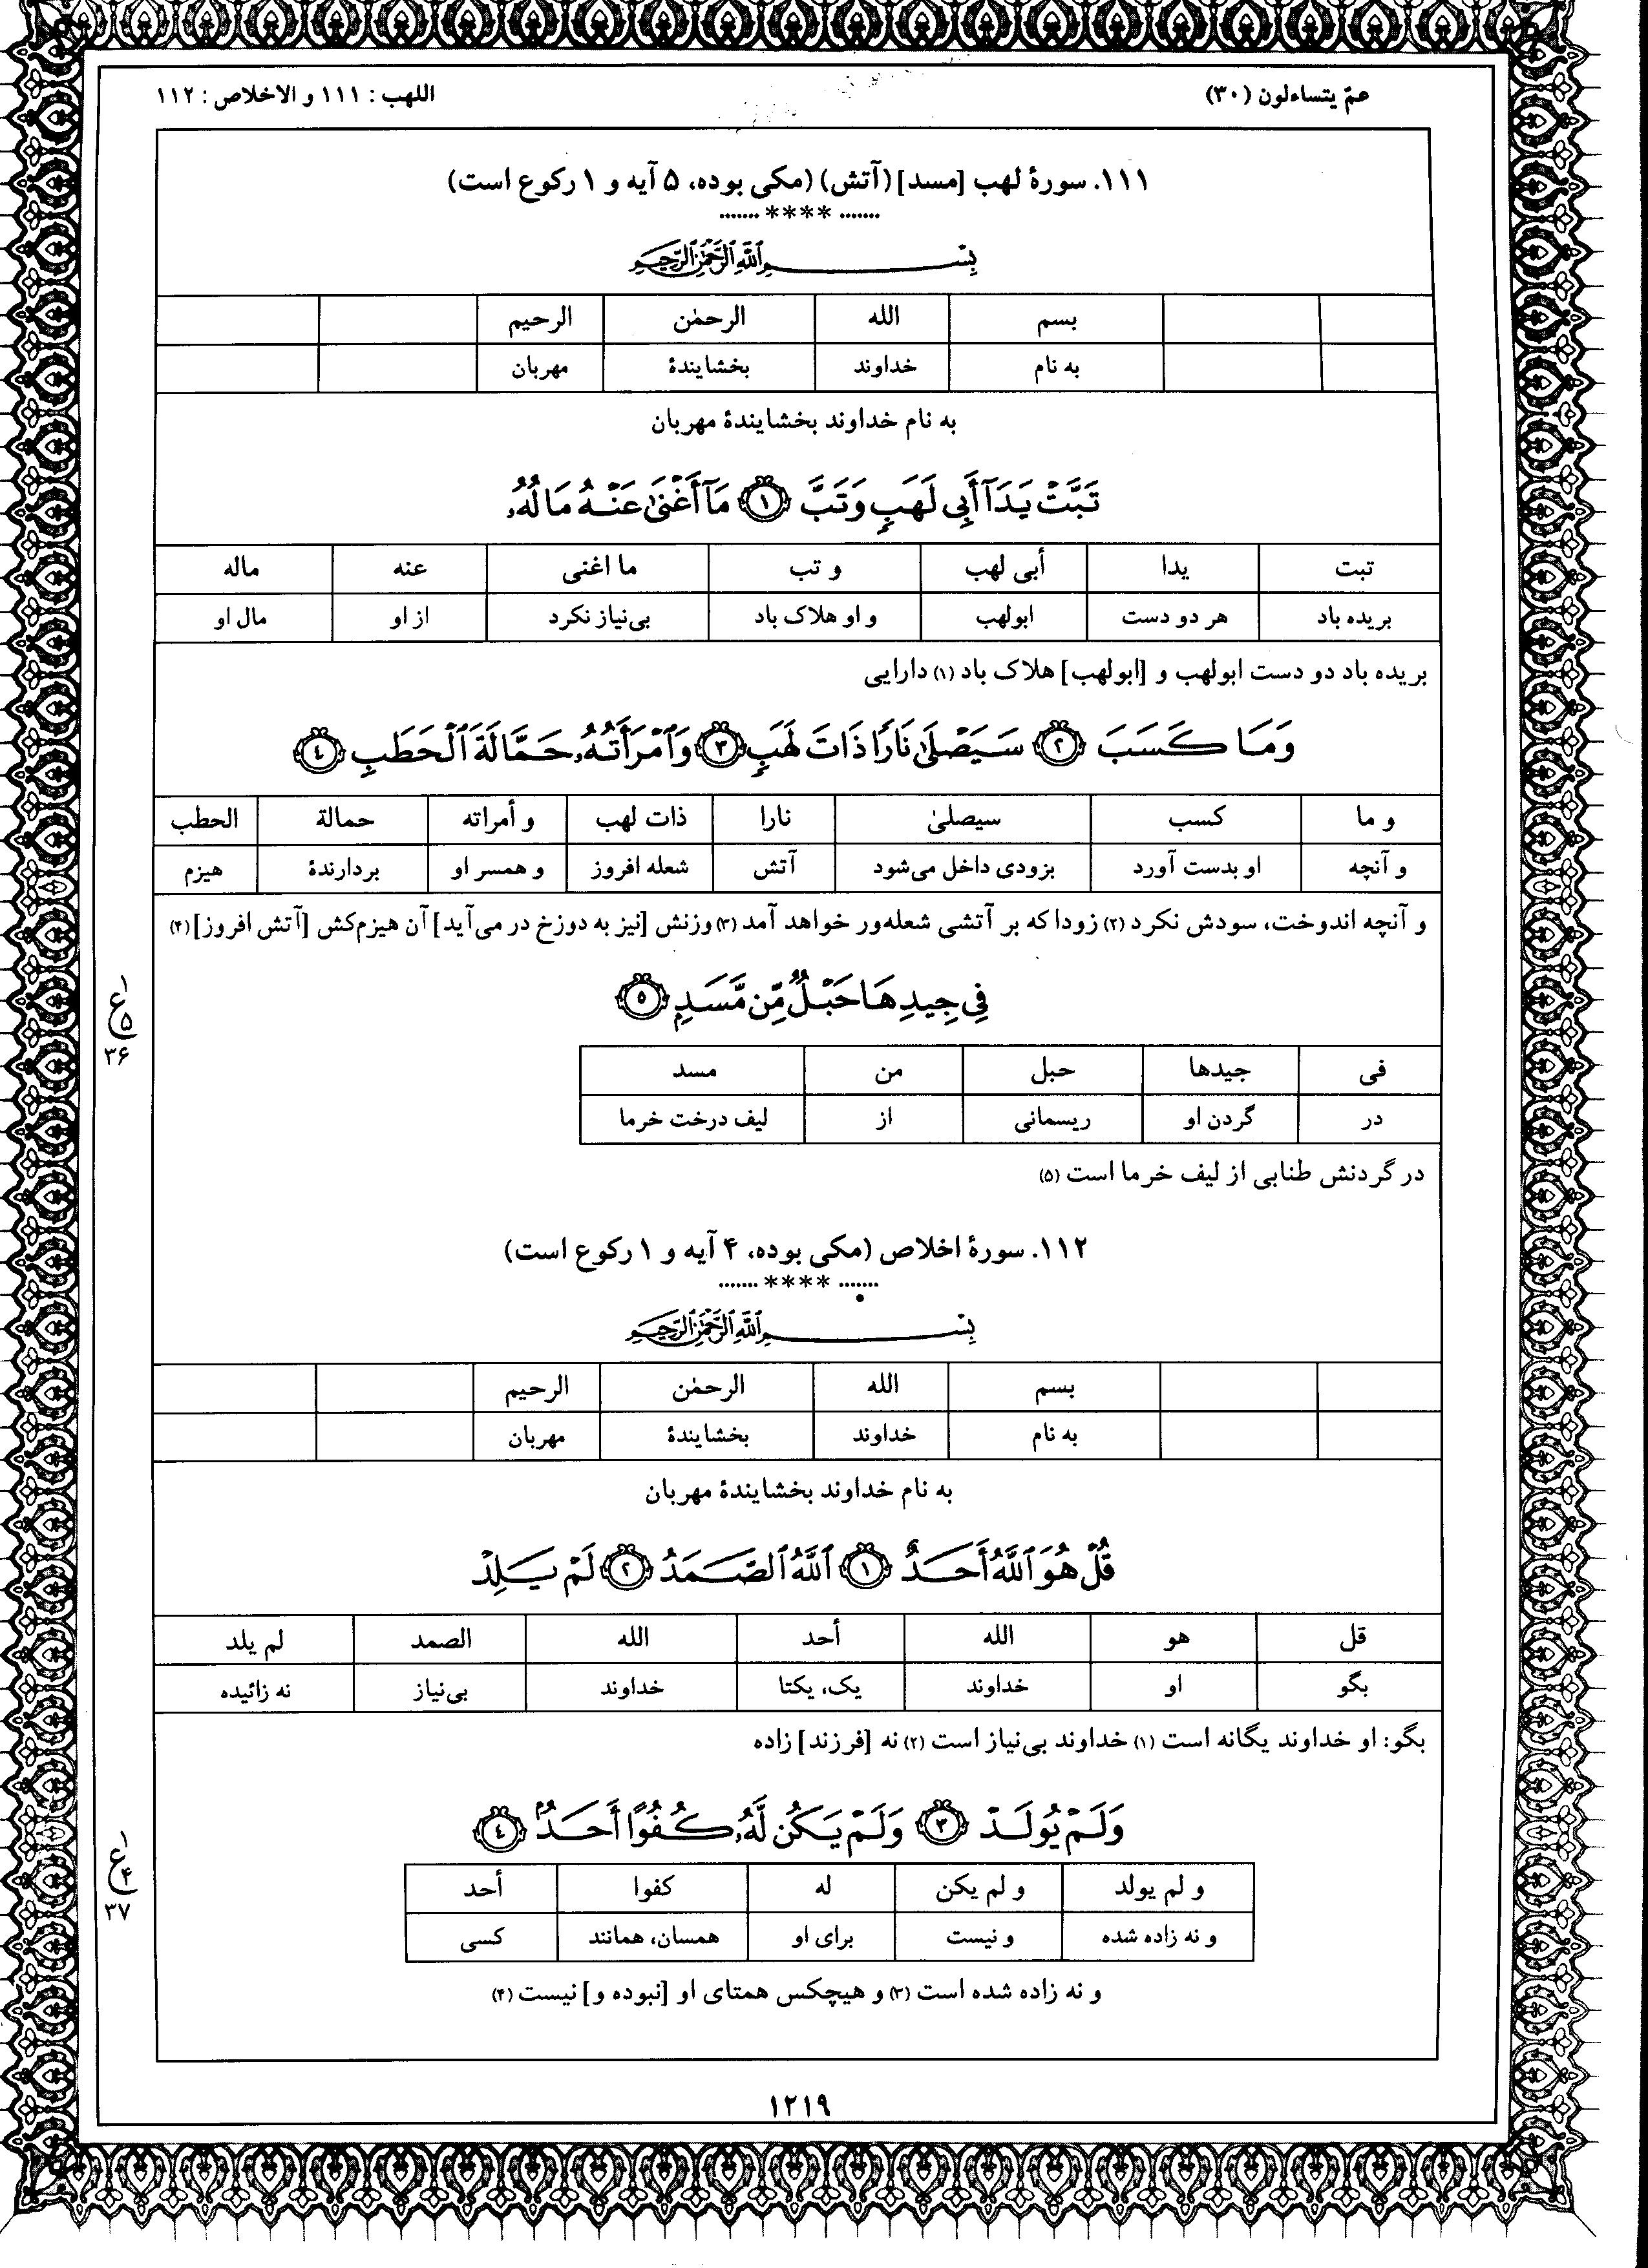 عمّ یتساءلون (۳۰)
اللهب : ۱۱۱ و الاخلاص : ۱۱۲
۱۱۱. سورهٔ لهب [مسد] (آتش) (مکی بوده، ۵ آیه و ۱ رکوع است)
....... **** .......
بِسْمِ ٱللَّهِ ٱلرَّحْمَٰنِ ٱلرَّحِيمِ
بسم الله الرحمٰن الرحیم
به نام خداوند بخشایندهٔ مهربان
به نام خداوند بخشایندهٔ مهربان
تَبَّتْ يَدَآ أَبِى لَهَبٍ وَتَبَّ ۝١ مَآ أَغْنَىٰ عَنْهُ مَالُهُۥ
تبت یدا أبی لهب و تب ما اغنی عنه ماله
بریده باد هر دو دست ابولهب و او هلاک باد بی‌نیاز نکرد از او مال او
بریده باد دو دست ابولهب و [ابولهب] هلاک باد (۱) دارایی
وَمَا كَسَبَ ۝٢ سَيَصْلَىٰ نَارًا ذَاتَ لَهَبٍ ۝٣ وَٱمْرَأَتُهُۥ حَمَّالَةَ ٱلْحَطَبِ ۝٤
و ما کسب سیصلیٰ نارا ذات لهب و أمراته حمالة الحطب
و آنچه او بدست آورد بزودی داخل می‌شود آتش شعله افروز و همسر او بردارندهٔ هیزم
و آنچه اندوخت، سودش نکرد (۲) زودا که بر آتشی شعله‌ور خواهد آمد (۳) وزنش [نیز به دوزخ در می‌آید] آن هیزم‌کش [آتش افروز] (۴)
فِى جِيدِهَا حَبْلٌ مِّن مَّسَدٍ ۝٥
ع
۱
۵
۳۶
فی جیدها حبل من مسد
در گردن او ریسمانی از لیف درخت خرما
در گردنش طنابی از لیف خرما است (۵)
۱۱۲. سورهٔ اخلاص (مکی بوده، ۴ آیه و ۱ رکوع است)
....... **** .......
بِسْمِ ٱللَّهِ ٱلرَّحْمَٰنِ ٱلرَّحِيمِ
بسم الله الرحمٰن الرحیم
به نام خداوند بخشایندهٔ مهربان
به نام خداوند بخشایندهٔ مهربان
قُلْ هُوَ ٱللَّهُ أَحَدٌ ۝١ ٱللَّهُ ٱلصَّمَدُ ۝٢ لَمْ يَلِدْ
قل هو الله أحد الله الصمد لم یلد
بگو او خداوند یک، یکتا خداوند بی‌نیاز نه زائیده
بگو: او خداوند یگانه است (۱) خداوند بی‌نیاز است (۲) نه [فرزند] زاده
وَلَمْ يُولَدْ ۝٣ وَلَمْ يَكُن لَّهُۥ كُفُوًا أَحَدٌۢ ۝٤
ع
۱
۴
۳۷
و لم یولد و لم یکن له کفوا أحد
و نه زاده شده و نیست برای او همسان، همانند کسی
و نه زاده شده است (۳) و هیچکس همتای او [نبوده و] نیست (۴)
۱۲۱۹